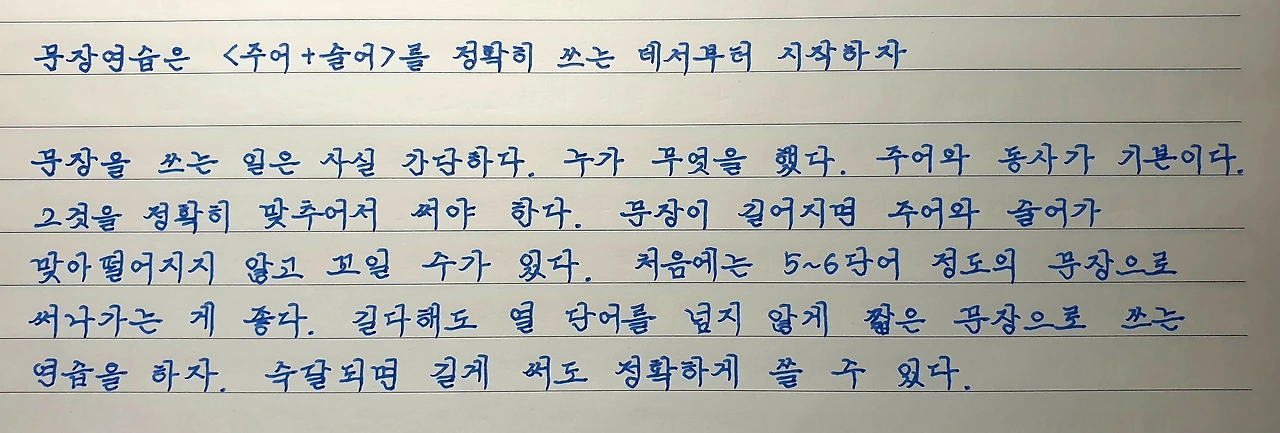 문장연습은 <주어+술어>를 정확히 쓰는 데서부터 시작하자
문장을 쓰는 일은 사실 간단하다. 누가 무엇을 했다. 주어와 동사가 기본이다.
그것을 정확히 맞추어서 써야 한다. 문장이 길어지면 주어와 술어가
맞아떨어지지 않고 꼬일 수가 있다. 처음에는 5~6단어 정도의 문장으로
써나가는 게 좋다. 길다해도 열 단어를 넘지 않게 짧은 문장으로 쓰는
연습을 하자. 숙달되면 길게 써도 정확하게 쓸 수 있다.